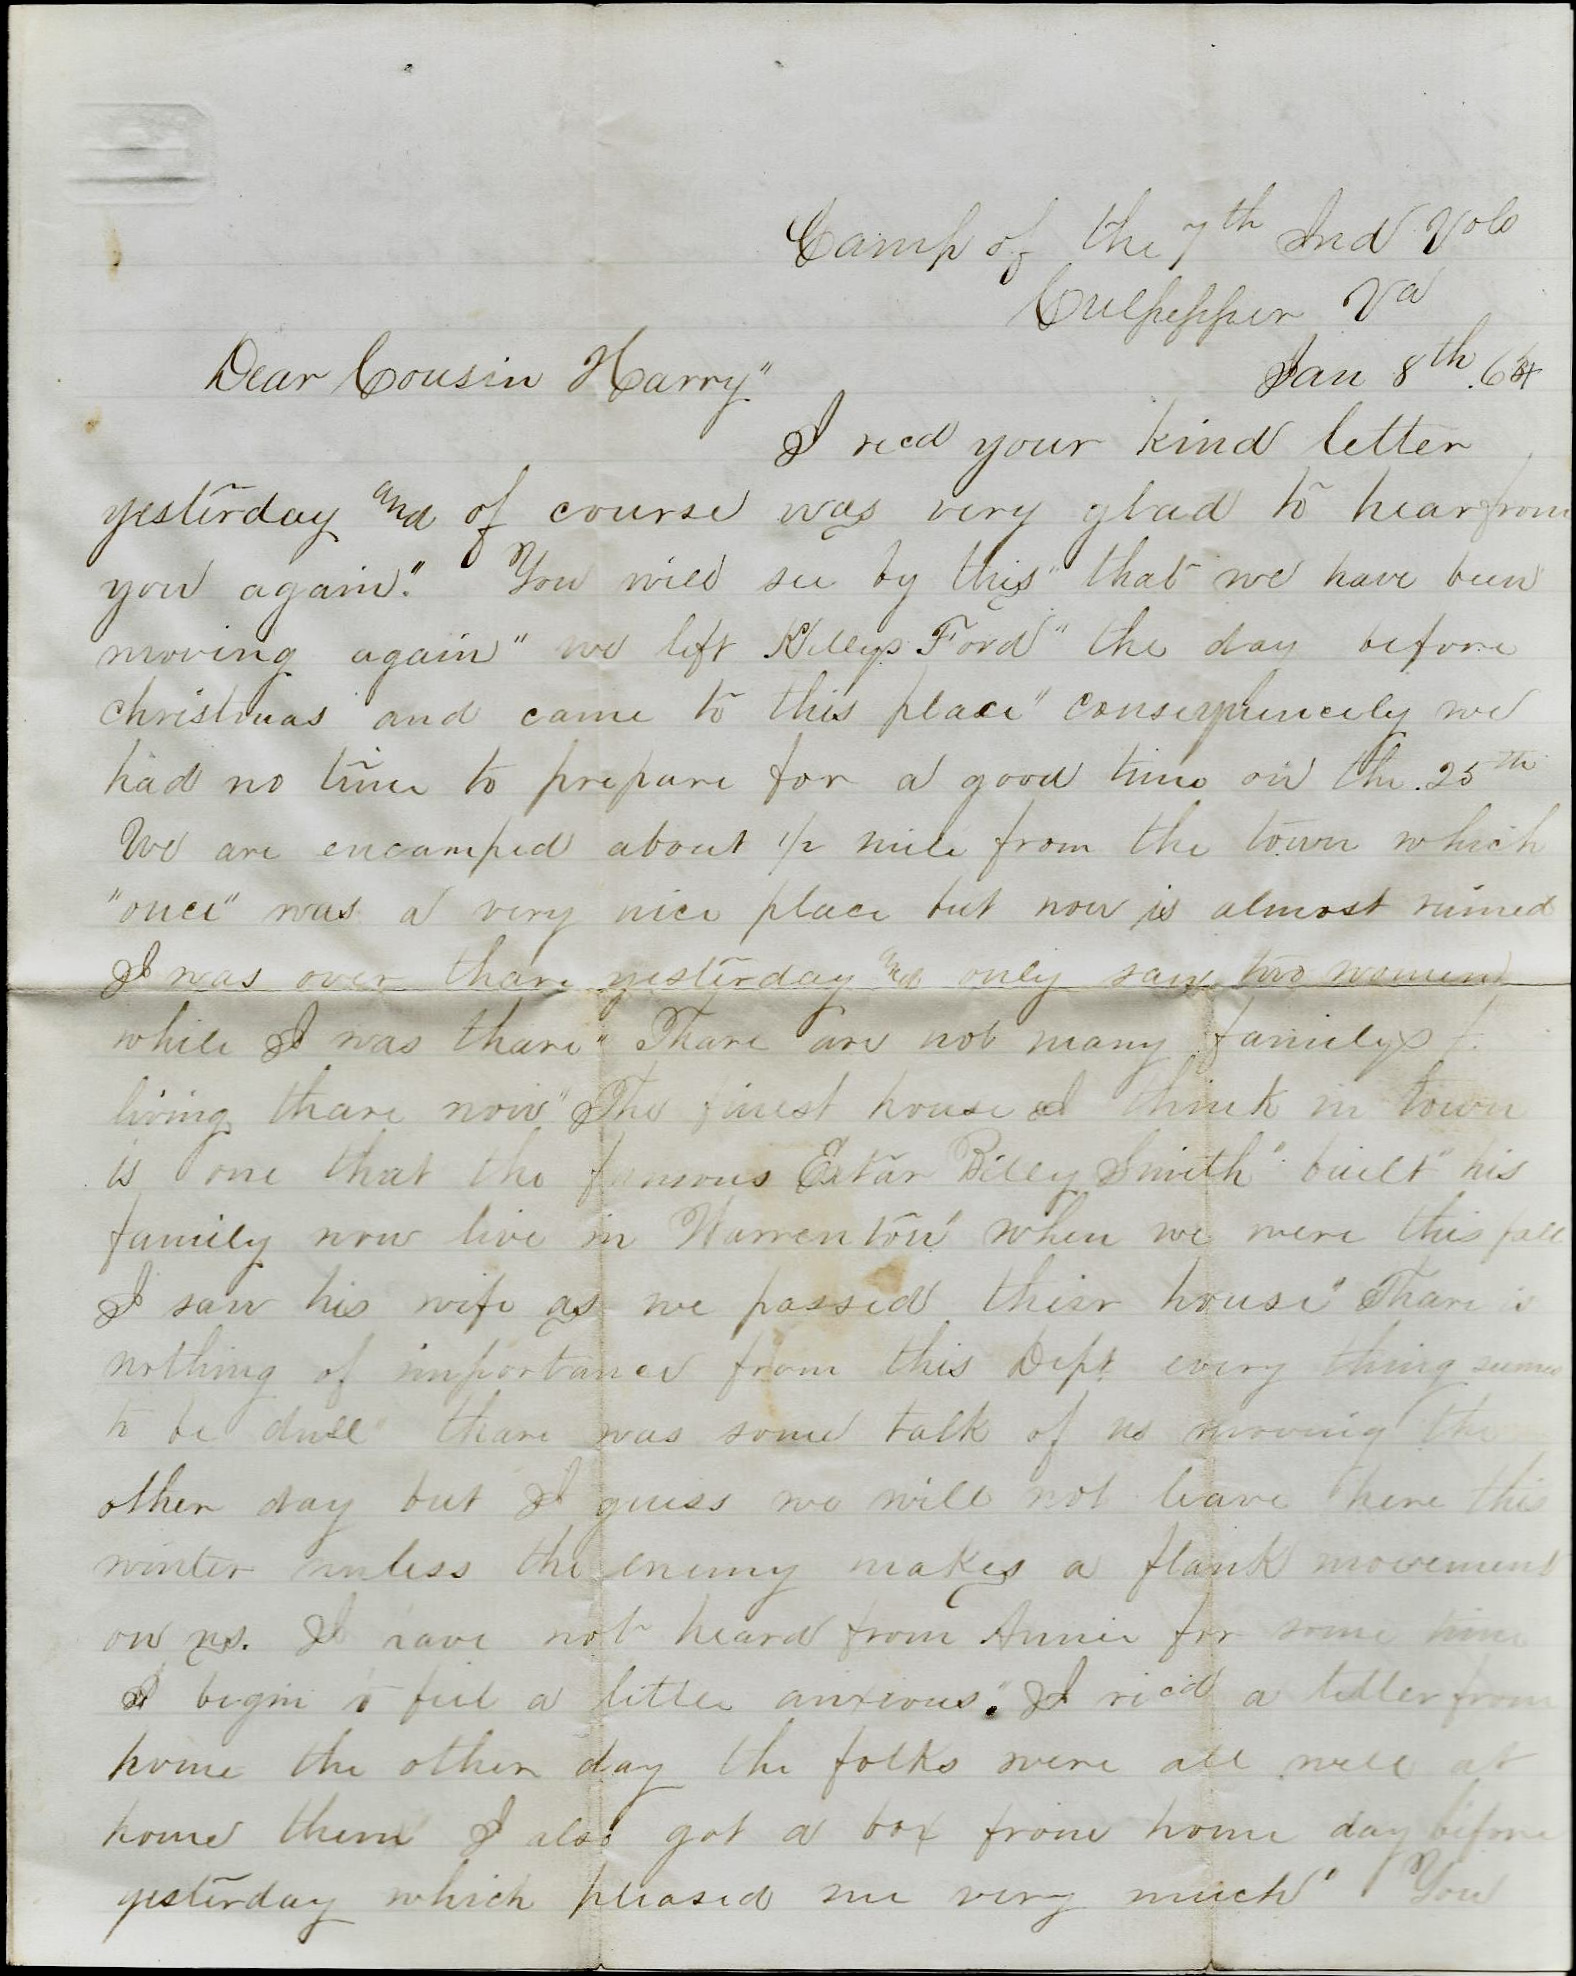 Camp of the 7th Ind Vols
Culpepper Va
Jan 8th .64
Dear Cousin Harry"
I recd your kind letter
yesterday and of course was very glad to hear from
you again". You will see by this" that we have been
moving again" we left Kellys Ford" the day before
christmas and came to this place" consequencely we
had no time to prepare for a good time on the .25th
We are encamped about 1/2 mile from the town which
"once" was a very nice place but now is almost ruined
I was over thare yesterday and only saw two women
while I was thare" Thare are not many familys
living thare now" The finest house I think in town
is one that the famous Extar Billy Smith" built" his
family now live in Warrenton" when we were this fall
I saw his wife as we passed thier house" Thare is
nothing of importance from this Dept every thing seems
to be dull" thare was some talk of us moving the
other day but I guess we will not leave here this
winter unless the enemy makes a flank movement
on us. I have not heard from Annie for some time
I begin to feel a little anxious". I recd a letter from
home the other day the folks were all well at
home then I also got a box from home day before
yesterday which pleased me very much" You